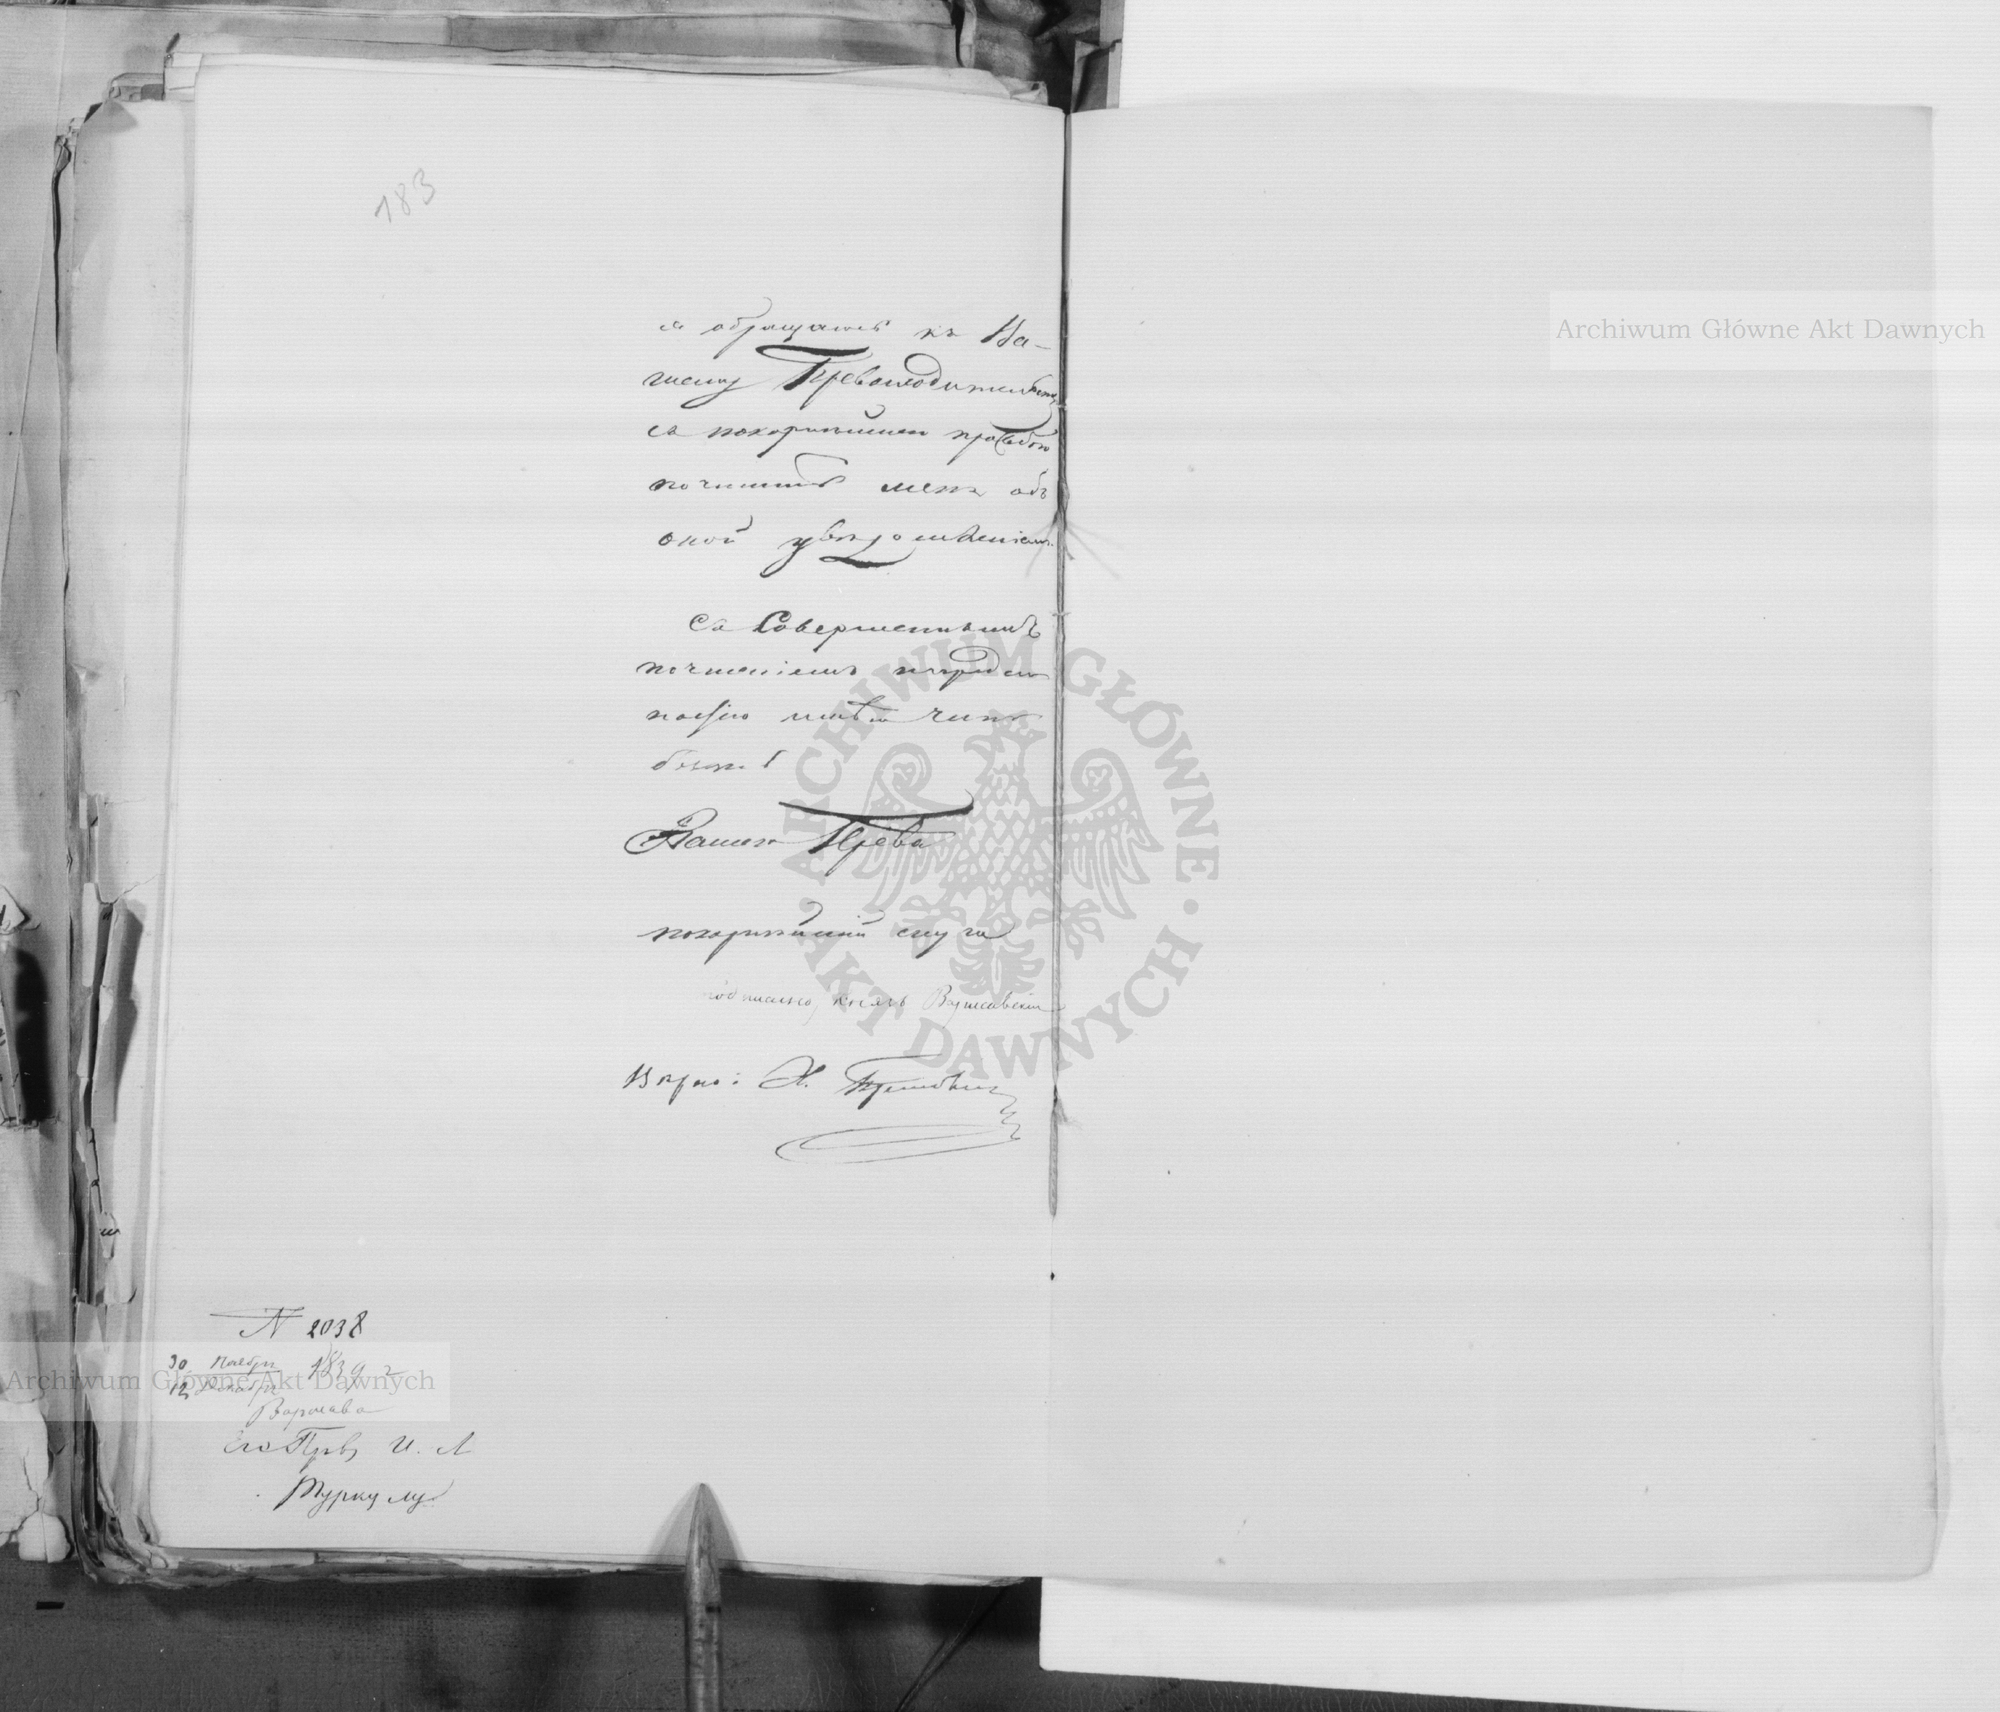 183
я обращаюсь къ Ва-
шему Превосходительству
съ покорнѣйшею просьбою
почтить меня объ
оной увѣдомленіемъ.
Съ Совершеннымъ
почтеніемъ и предан
ностію имѣю честь
быть
Вашего Прева
покорнѣйшій слуга
подписано, князь Варшавскій
Вѣрно: Х.
N 2038
30 Ноября 1839 г
12 Декабря
Варшава
Его Прву И. Л
Туркулу
Archiwum Główne Akt Dawnych
Archiwum Główne Akt Dawnych
ARCHIWUM GŁÓWNE · AKT DAWNYCH ·